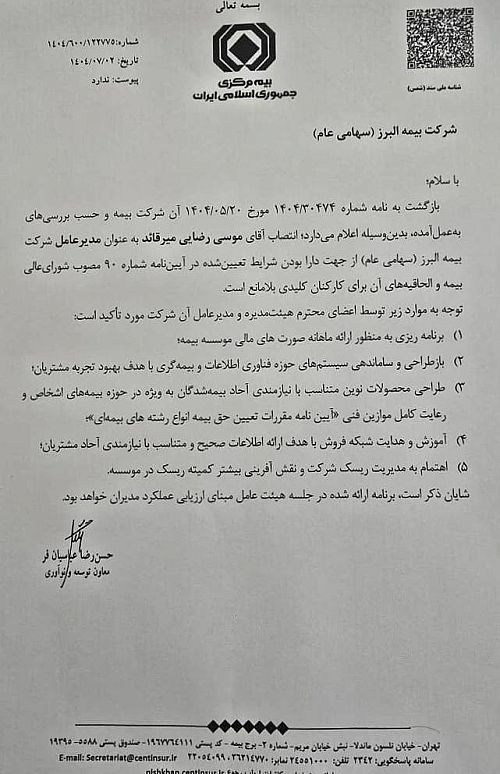 بسمه تعالی
شماره: ۱۴۰۴/۶۰۰/۱۲۲۷۷۵
تاریخ: ۱۴۰۴/۰۷/۰۲
پیوست: ندارد
بیمه مرکزی
جمهوری اسلامی ایران
شناسه ملی سند (شمس)
شرکت بیمه البرز (سهامی عام)
با سلام؛
بازگشت به نامه شماره ۱۴۰۴/۳۰۴۷۴ مورخ ۱۴۰۴/۰۵/۲۰ آن شرکت بیمه و حسب بررسی‌های
به‌عمل‌آمده، بدین‌وسیله اعلام می‌دارد؛ انتصاب آقای موسی رضایی میرقائد به عنوان مدیرعامل شرکت
بیمه البرز (سهامی عام) از جهت دارا بودن شرایط تعیین‌شده در آیین‌نامه شماره ۹۰ مصوب شورای‌عالی
بیمه و الحاقیه‌های آن برای کارکنان کلیدی بلامانع است.
توجه به موارد زیر توسط اعضای محترم هیئت‌مدیره و مدیرعامل آن شرکت مورد تأکید است:
۱) برنامه ریزی به منظور ارائه ماهانه صورت های مالی موسسه بیمه؛
۲) بازطراحی و ساماندهی سیستم‌های حوزه فناوری اطلاعات و بیمه‌گری با هدف بهبود تجربه مشتریان؛
۳) طراحی محصولات نوین متناسب با نیازمندی آحاد بیمه‌شدگان به ویژه در حوزه بیمه‌های اشخاص و
رعایت کامل موازین فنی «آیین نامه مقررات تعیین حق بیمه انواع رشته های بیمه‌ای»؛
۴) آموزش و هدایت شبکه فروش با هدف ارائه اطلاعات صحیح و متناسب با نیازمندی آحاد مشتریان؛
۵) اهتمام به مدیریت ریسک شرکت و نقش آفرینی بیشتر کمیته ریسک در موسسه.
شایان ذکر است، برنامه ارائه شده در جلسه هیئت عامل مبنای ارزیابی عملکرد مدیران خواهد بود.
حسن‌رضا عباسیان فر
معاون توسعه و نوآوری
تهران- خیابان نلسون ماندلا- نبش خیابان مریم- شماره ۲- برج بیمه - کد پستی ۱۹۶۷۷۶۴۱۱۱- صندوق پستی ۵۵۸۸- ۱۹۳۹۵
سامانه پاسخگویی: ۲۳۴۲ تلفن: ۲۴۵۵۱۰۰۰ نمابر: ۲۶۲۱۴۷۷۰ ,۲۲۰۵۴۰۹۹ E-mail: Secretariat@centinsur.ir